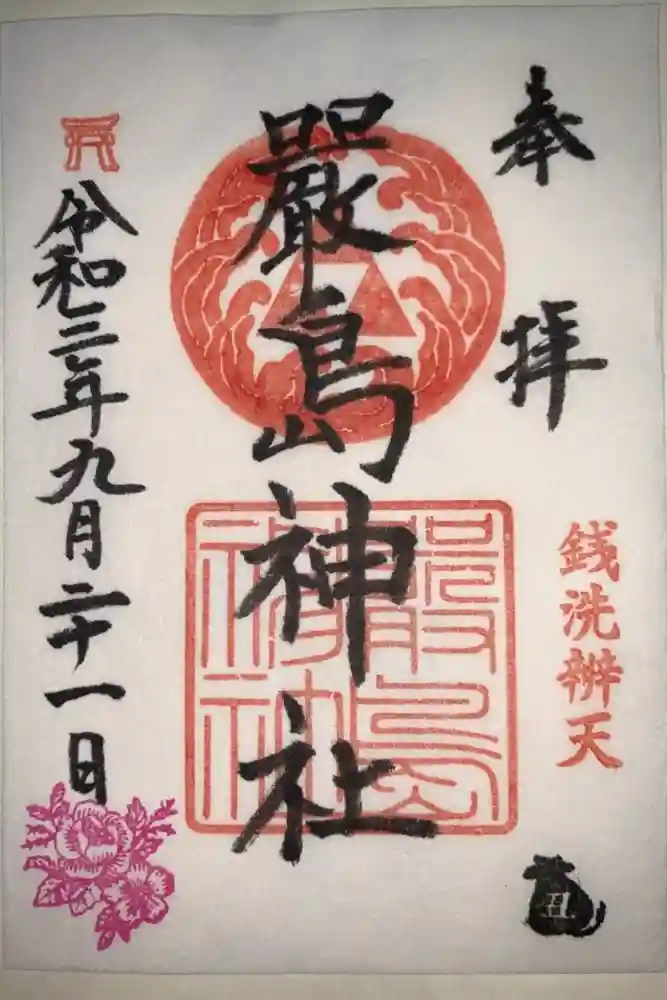 奉拝
銭洗辨天
丑
嚴島神社
令和三年九月二十一日